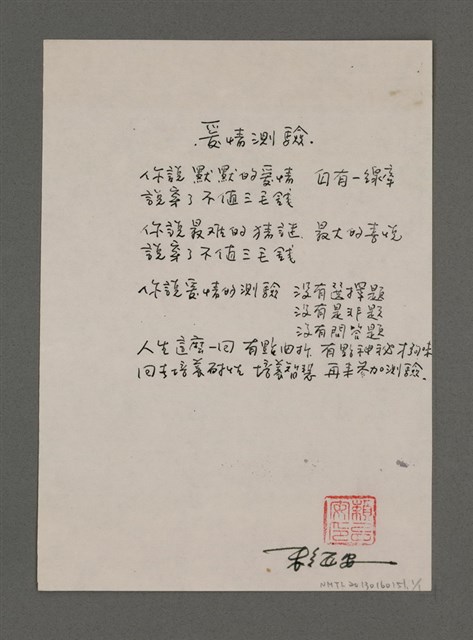 愛情測驗
你說默默的愛情 自有一線牽
說穿了不值三毛錢
你說最难的猜謎 最大的喜悅
說穿了不值三毛錢
你說愛情的測驗 沒有選擇題
沒有是非題
沒有問答題
人生這麼一回 有點曲折 有點神秘才夠味
回去培養耐性 培養智慧 再來參加測驗.
NMTL20190160156 1/1